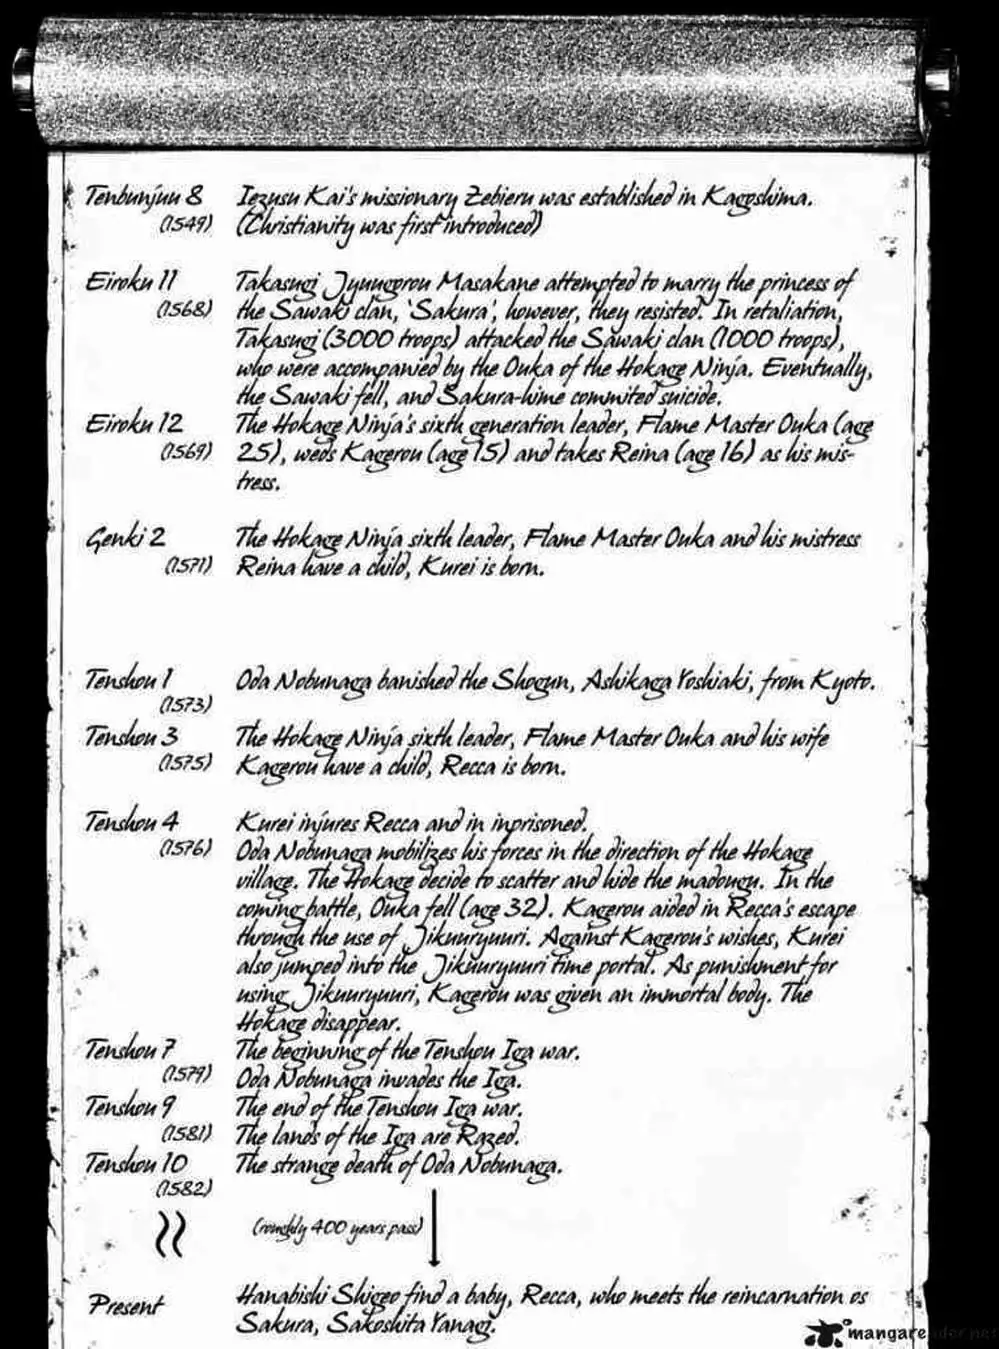 Tenbunjuu 8 Iezusu Kai's missionary Zebieru was established in Kagoshima.
(1549) (Christianity was first introduced)
Eiroku 11 Takasugi Jyuugorou Masakane attempted to marry the princess of
(1568) the Sawaki clan, 'Sakura', however, they resisted. In retaliation,
Takasugi (3000 troops) attacked the Sawaki clan (1000 troops),
who were accompanied by the Ouka of the Hokage Ninja. Eventually,
the Sawaki fell, and Sakura-hime commited suicide.
Eiroku 12 The Hokage Ninja's sixth generation leader, Flame Master Ouka (age
(1569) 25), weds Kagerou (age 15) and takes Reina (age 16) as his mis-
tress.
Genki 2 The Hokage Ninja sixth leader, Flame Master Ouka and his mistress
(1571) Reina have a child, Kurei is born.
Tenshou 1 Oda Nobunaga banished the Shogun, Ashikaga Yoshiaki, from Kyoto.
(1573)
Tenshou 3 The Hokage Ninja sixth leader, Flame Master Ouka and his wife
(1575) Kagerou have a child, Recca is born.
Tenshou 4 Kurei injures Recca and in inprisoned.
(1576) Oda Nobunaga mobilizes his forces in the direction of the Hokage
village. The Hokage decide to scatter and hide the madougu. In the
coming battle, Ouka fell (age 32). Kagerou aided in Recca's escape
through the use of Jikuuryuuri. Against Kagerou's wishes, Kurei
also jumped into the Jikuuryuuri time portal. As punishment for
using Jikuuryuuri, Kagerou was given an immortal body. The
Hokage disappear.
Tenshou 7 The beginning of the Tenshou Iga war.
(1579) Oda Nobunaga invades the Iga.
Tenshou 9 The end of the Tenshou Iga war.
(1581) The lands of the Iga are Razed.
Tenshou 10 The strange death of Oda Nobunaga.
(1582)
(roughly 400 years pass)
Present Hanabishi Shigeo find a baby, Recca, who meets the reincarnation os
Sakura, Sakoshita Yanagi.
mangareader.net